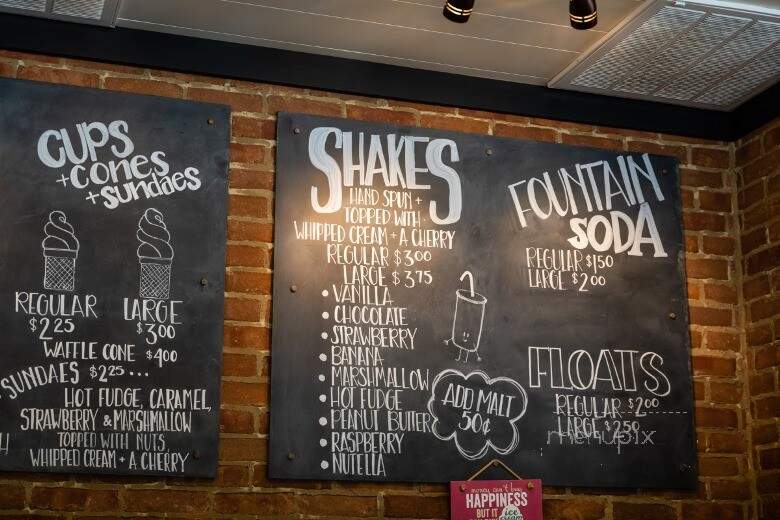 CUPS
+CONES
+SUNDAES
REGULAR
$2.25
LARGE
$3.00
WAFFLE CONE $4.00
SUNDAES $2.25...
HOT FUDGE, CARAMEL,
STRAWBERRY & MARSHMALLOW
TOPPED WITH NUTS,
WHIPPED CREAM + A CHERRY
SHAKES
HAND SPUN +
TOPPED WITH
WHIPPED CREAM + A CHERRY
REGULAR $3.00
LARGE $3.75
• VANILLA
• CHOCOLATE
• STRAWBERRY
• BANANA
• MARSHMALLOW
• HOT FUDGE
• PEANUT BUTTER
• RASPBERRY
• NUTELLA
ADD MALT
50¢
FOUNTAIN
SODA
REGULAR $1.50
LARGE $2.00
FLOATS
REGULAR $2.00
LARGE $2.50
menupix
money can't buy
HAPPINESS
BUT IT
ice
cream